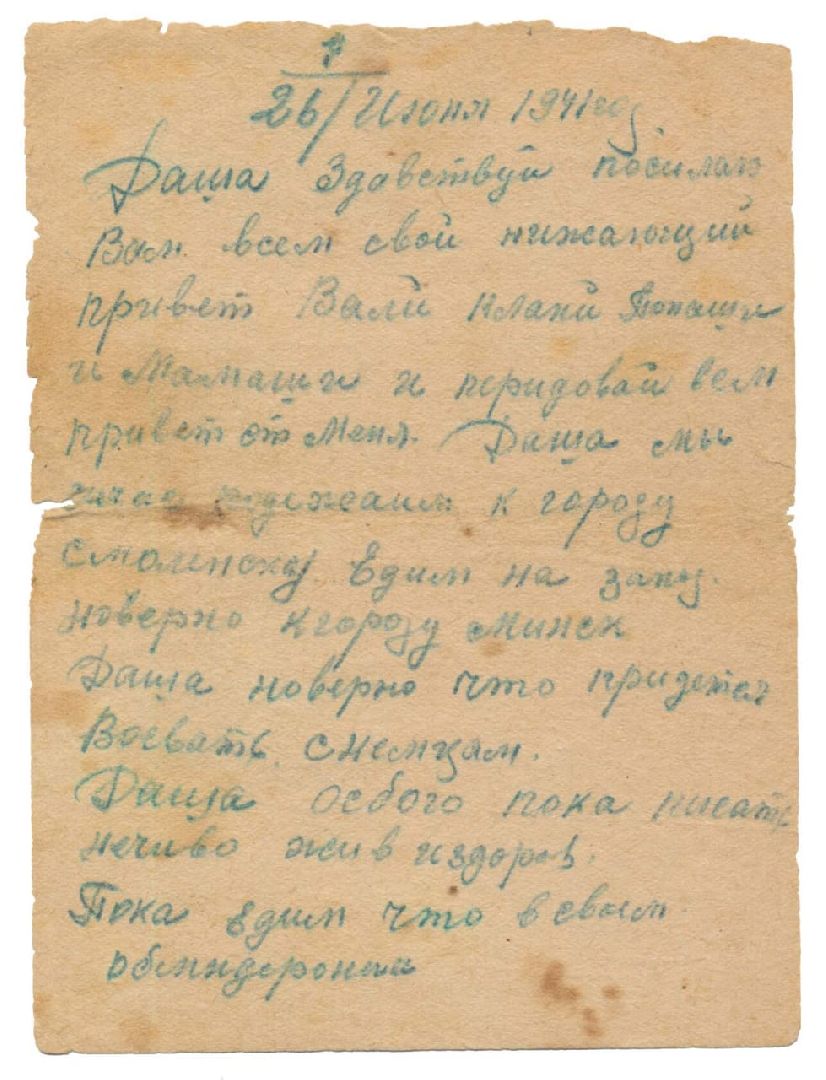 26/Июня 1941год
Даша Здавствуй посилаю
Вам всем свой нижающий
привет Вали Клани Попаши
и Мамаши и перидовай всем
привет от Меня. Даша мы
подежаим к городу
смоленску Едим на запад.
новерно к городу Минск
Даша новерно что придетса
Воевать с немцам.
Даша осбого пока писать
нечиво жив и здоров.
Пока Едим что в своим